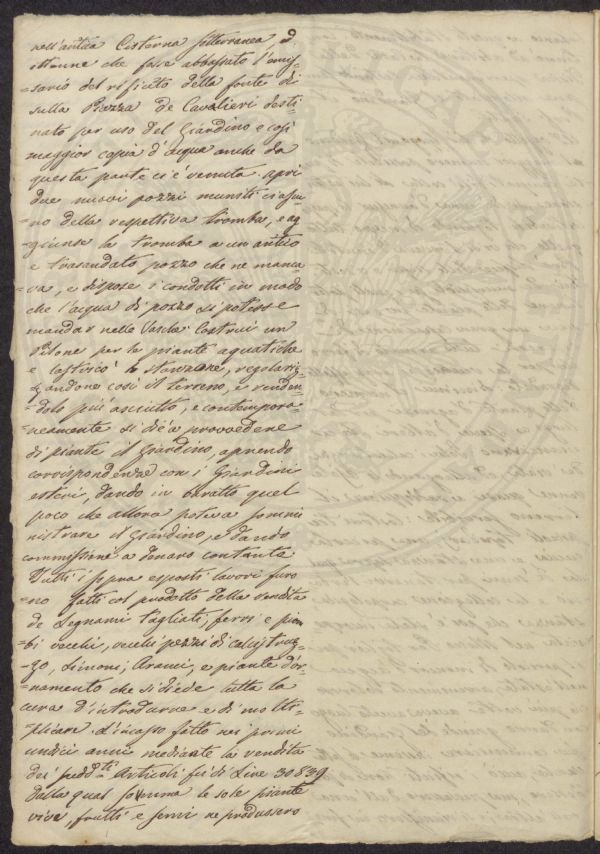 nell'antica Cisterna sotterranea, ed
ottenne che fosse abbassato l'emis=
=sario del rifiuto della fonte di
sulla Piazza de Cavalieri desti
nato per uso del Giardino e così
maggior copia d'acqua anche da
questa parte ci è venuta. Aprì
due nuovi pozzi muniti ciascu=
no della respettiva tromba, e ag=
giunse la tromba a un antico
e trasandato pozzo che ne manca=
=va, e dispose i condotti in modo
che l'acqua di pozzo si potesse
mandar nelle Vasche. Costruì un
Pilone per le piante aquatiche
e lastricò lo stanzone, regolariz=
=zandone così il terreno, e renden=
=dolo più asciutto, e contempora=
=neamente si diè a provvedere
di piante il Giardino, aprendo
corrispondenze con i Giardini
esteri, dando in baratto quel
poco che allora poteva sommi
nistrare il Giardino, e dando
commissione a danaro contante.
Tutti i sopra esposti lavori furo
=no fatti col prodotto della vendita
de Legnami tagliati, ferri e piom=
=bi vecchi, vecchi pezzi di calcistruz=
=zo, Limoni, Aranci, e piante d'or=
=namento che si diede tutta la
cura d'introdurne e di molti=
=plicare. L'incasso fatto nei primi
undici anni mediante la vendita
dei suddti. Articoli fu di Lire 30839
Dalla qual somma le sole piante
vive, frutti e semi ne produssero